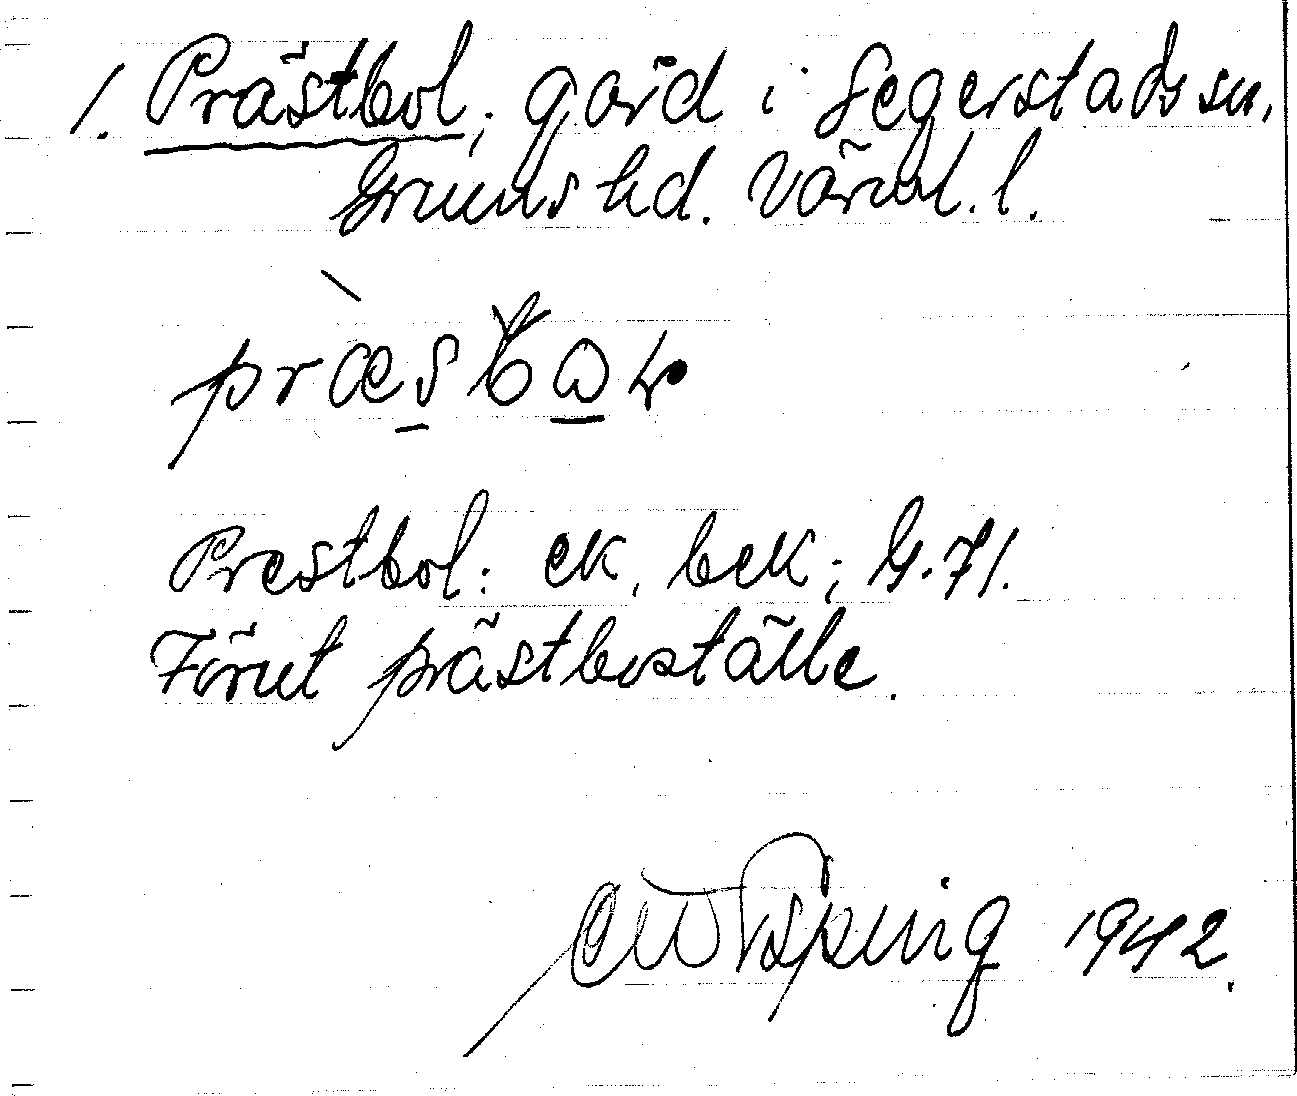 1. Prästbol, gård i Segerstads sn,
Grums hd. Värml. l.
Prestbol: ek. bek; G. 71.
Förut prästboställe.
1942.